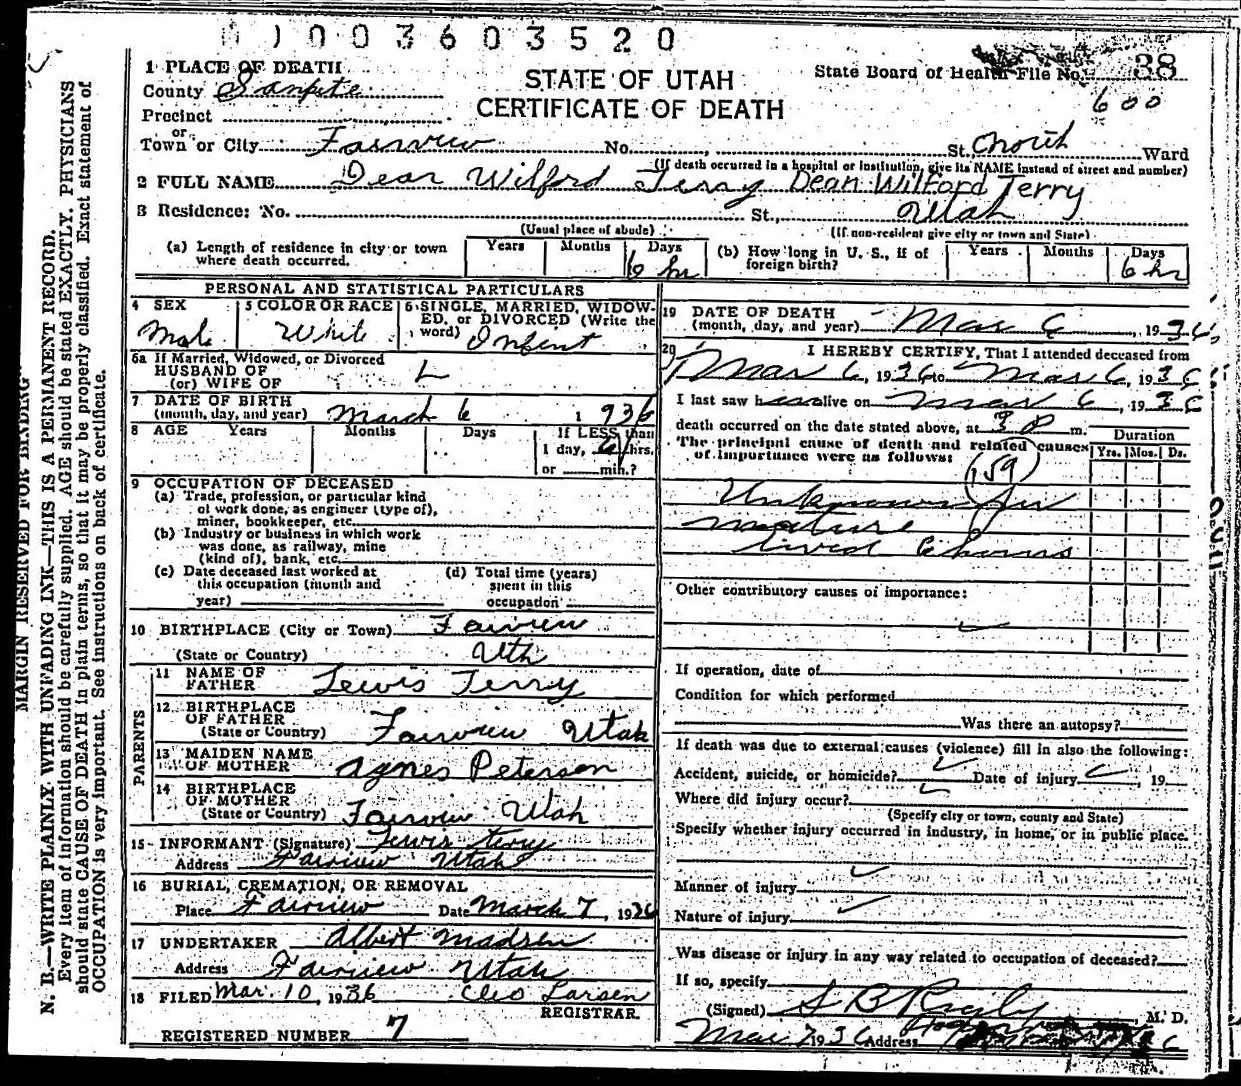 1003603520
1 PLACE OF DEATH
County Sanpete
STATE OF UTAH
CERTIFICATE OF DEATH
State Board of Health File No. 38
600
Precinct
or
Town or City Fairview No. , St., North Ward
(If death occurred in a hospital or institution, give its NAME instead of street and number)
2 FULL NAME Dean Wilford Terry Dean Wilford Terry
3 Residence: No. St., Utah
(Usual place of abode) (If non-resident give city or town and State)
(a) Length of residence in city or town where death occurred. Years Months Days 6 hr
(b) How long in U. S., if of foreign birth? Years Months Days 6 hr
PERSONAL AND STATISTICAL PARTICULARS
4 SEX Male
5 COLOR OR RACE White
6 SINGLE, MARRIED, WIDOWED, or DIVORCED (Write the word) Infent
6a If Married, Widowed, or Divorced
HUSBAND OF
(or) WIFE OF
7 DATE OF BIRTH
(month, day, and year) March 6 1936
8 AGE Years Months Days If LESS than
1 day, 6 hrs.
or min.?
9 OCCUPATION OF DECEASED
(a) Trade, profession, or particular kind
of work done, as engineer (type of),
miner, bookkeeper, etc.
(b) Industry or business in which work
was done, as railway, mine
(kind of), bank, etc.
(c) Date deceased last worked at
this occupation (month and
year)
(d) Total time (years)
spent in this
occupation
10 BIRTHPLACE (City or Town) Fairview
(State or Country) Utah
PARENTS
11 NAME OF
FATHER Lewis Terry
12 BIRTHPLACE
OF FATHER
(State or Country) Fairview Utah
13 MAIDEN NAME
OF MOTHER Agnes Peterson
14 BIRTHPLACE
OF MOTHER
(State or Country) Fairview Utah
15 INFORMANT (Signature) Lewis Terry
Address Fairview Utah
16 BURIAL, CREMATION, OR REMOVAL
Place Fairview Date March 7, 1936
17 UNDERTAKER Albert Madsen
Address Fairview Utah
18 FILED Mar. 10, 1936 Cleo Larsen
REGISTRAR.
REGISTERED NUMBER 7
19 DATE OF DEATH
(month, day, and year) Mar 6, 1936
20 I HEREBY CERTIFY, That I attended deceased from
Mar 6, 1936 to Mar 6, 1936
I last saw h alive on Mar 6, 1936
death occurred on the date stated above, at 3 P m.
The principal cause of death and related causes
of importance were as follows:
Duration
Yrs. Mos. Ds.
(159)
Unknown
mature
lived 6 hours
Other contributory causes of importance:
If operation, date of
Condition for which performed
Was there an autopsy?
If death was due to external causes (violence) fill in also the following:
Accident, suicide, or homicide? Date of injury 19
Where did injury occur?
(Specify city or town, county and State)
Specify whether injury occurred in industry, in home, or in public place.
Manner of injury
Nature of injury
Was disease or injury in any way related to occupation of deceased?
If so, specify
(Signed) S B M. D.
Mar 7 1936 Address
MARGIN RESERVED FOR BINDING
N. B.—WRITE PLAINLY, WITH UNFADING INK—THIS IS A PERMANENT RECORD.
Every item of information should be carefully supplied. AGE should be stated EXACTLY. PHYSICIANS
should state CAUSE OF DEATH in plain terms, so that it may be properly classified. Exact statement of
OCCUPATION is very important. See instructions on back of certificate.